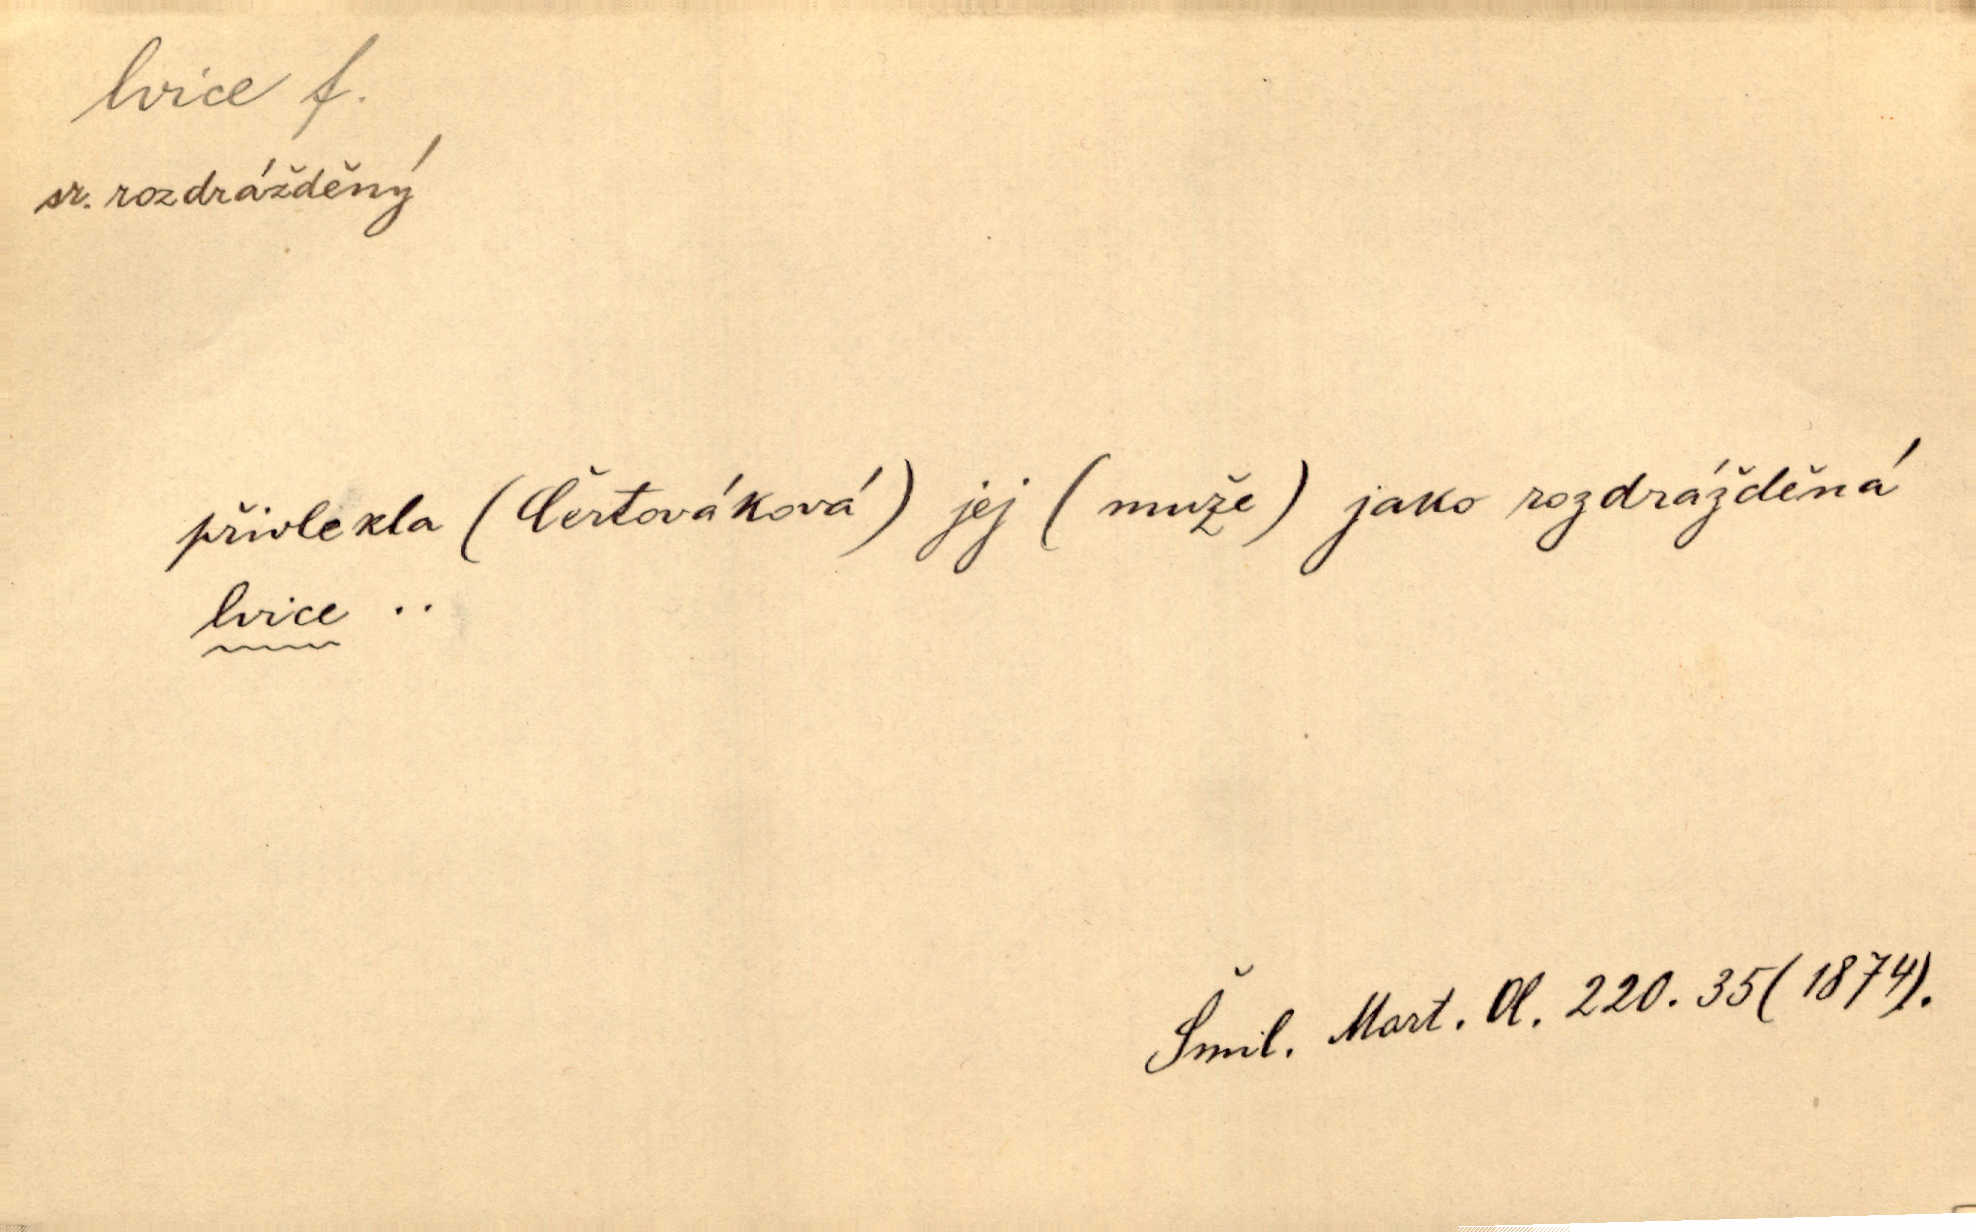 lvice f.
sr. rozdrážděný
přivlekla (Čertováková) jej (muže) jako rozdrážděná
lvice ..
Šmil. Mart. Ol. 220. 35 (1874).